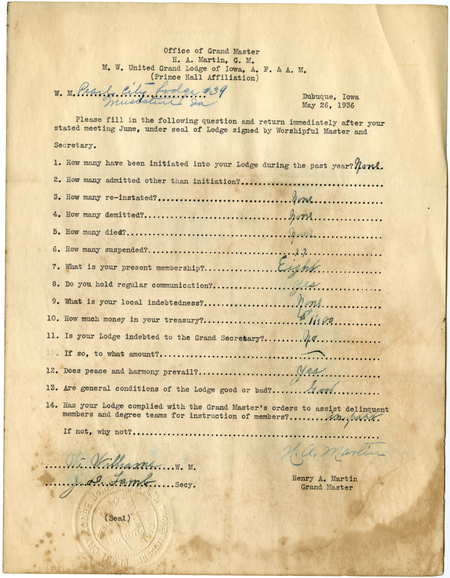 Office of Grand Master
H. A. Martin, G. M.
M. W. United Grand Lodge of Iowa, A. F. & A. M.
(Prince Hall Affiliation)
W. M. Pearl City Lodge #39
Muscatine Ia
Dubuque, Iowa
May 26, 1936
Please fill in the following question and return immediately after your
stated meeting June, under seal of Lodge signed by Worshipful Master and
Secretary.
1. How many have been initiated into your Lodge during the past year? None
2. How many admitted other than initiation?
3. How many re-instated? None
4. How many demitted? None
5. How many died? None
6. How many suspended? "
7. What is your present membership? Eight
8. Do you hold regular communication? Yes
9. What is your local indebtedness? None
10. How much money in your treasury?
11. Is your Lodge indebted to the Grand Secretary? No
If so, to what amount? —
12. Does peace and harmony prevail? Yes
13. Are general conditions of the Lodge good or bad? Good
14. Has your Lodge complied with the Grand Master's orders to assist delinquent
members and degree teams for instruction of members? in part
If not, why not?
W. Williams W. M.
H. A. Martin
Jas. Lamb Secy.
Henry A. Martin
Grand Master
(Seal)